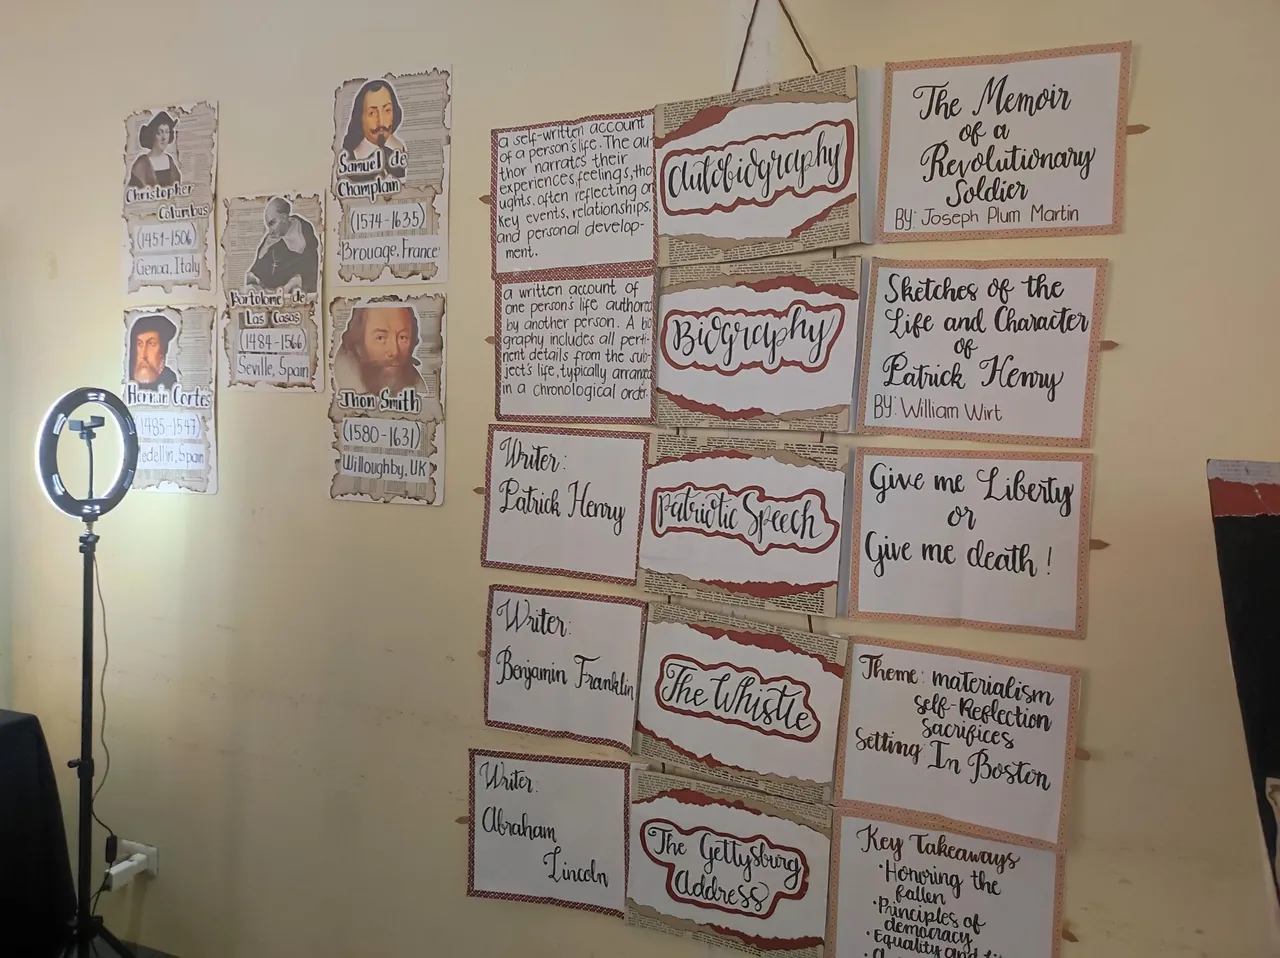 Christopher
Columbus
(1451-1506)
Genoa, Italy
Hernán Cortés
1485-1547)
edellín, Spain
Bartolomé de
Las Casas
(1484-1566)
Seville, Spain
Samuel de
Champlain
(1574-1635)
Brouage, France
Jhon Smith
(1580-1631)
Willoughby, UK
a self-written account
of a person's life. The au-
thor narrates their
experiences, feelings, tho
ughts, often reflecting on
key events, relationships,
and personal develop-
ment.
Autobiography
The Memoir
of a
Revolutionary
Soldier
BY: Joseph Plum Martin
a written account of
one person's life authored
by another person. A bio
graphy includes all perti-
nent details from the sub-
ject's life, typically arranged
in a chronological order.
Biography
Sketches of the
Life and Character
of
Patrick Henry
BY: William Wirt
Writer:
Patrick Henry
Patriotic Speech
Give me Liberty
or
Give me death!
Writer:
Benjamin Franklin
The Whistle
Theme: materialism
self-Reflection
sacrifices
Setting: In Boston
Writer:
Abraham
Lincoln
The Gettysburg
Address
Key Takeaways
• Honoring the
fallen
• Principles of
democracy
• Equality and